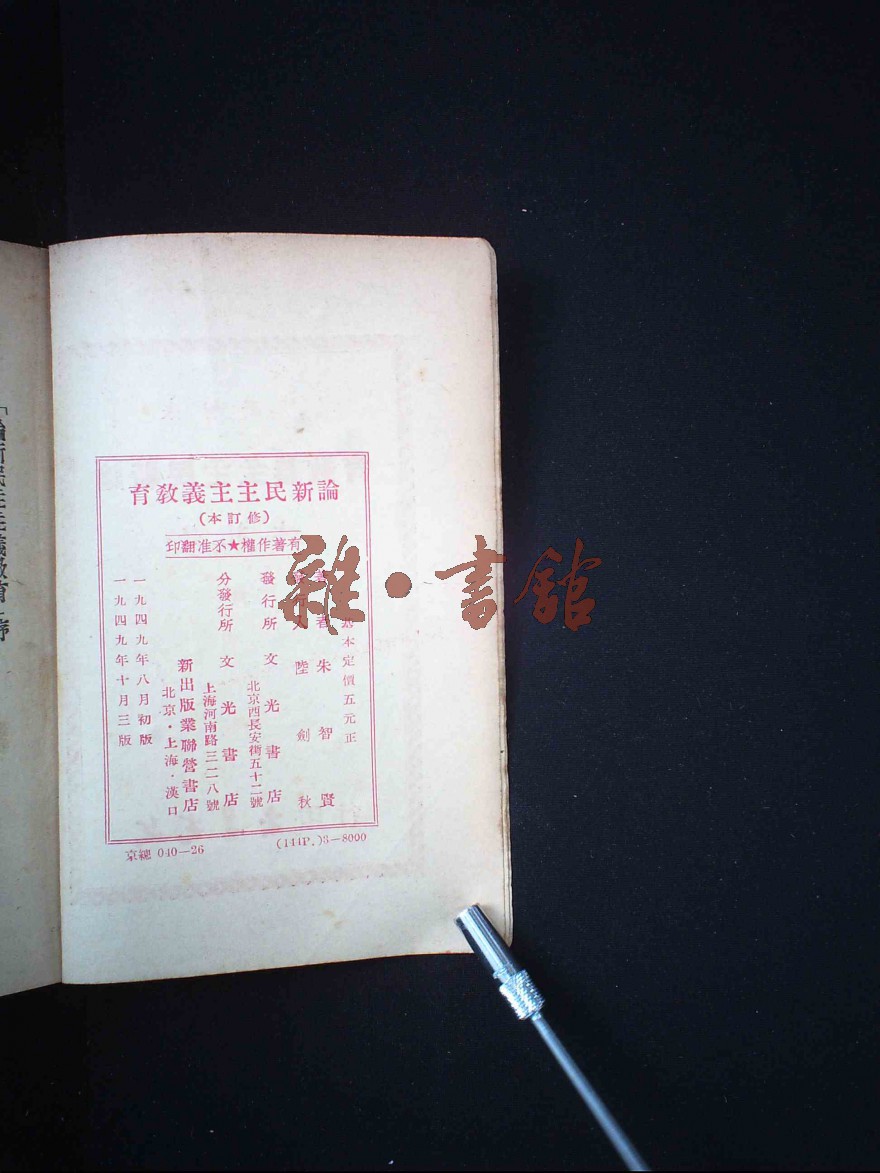 論新民主主義教育
(修訂本)
有著作權★不准翻印
本定價五元正
著者 朱智賢
發行人 陸劍秋
發行所 文光書店
北京西長安街五十二號
分發行所 文光書店
上海河南路三二八號
新出版業聯營書店
北京·上海·漢口
一九四九年八月初版
一九四九年十月三版
(144P.)3—8000
京總 040—26
雜·書館
「論新民主主義教育」序